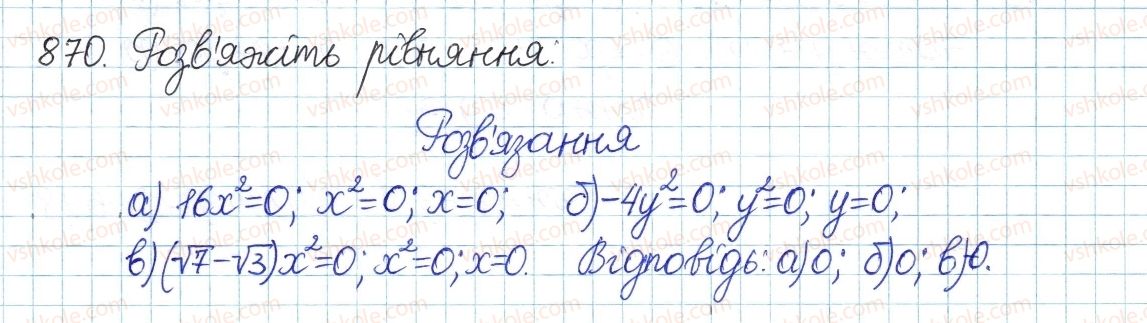 870. Розв'яжіть рівняння:
Розв'язання
а) 16x²=0; x²=0; x=0; б) -4y²=0; y²=0; y=0;
в) (√7-√3)x²=0; x²=0; x=0. Відповідь: а) 0; б) 0; в) 0.